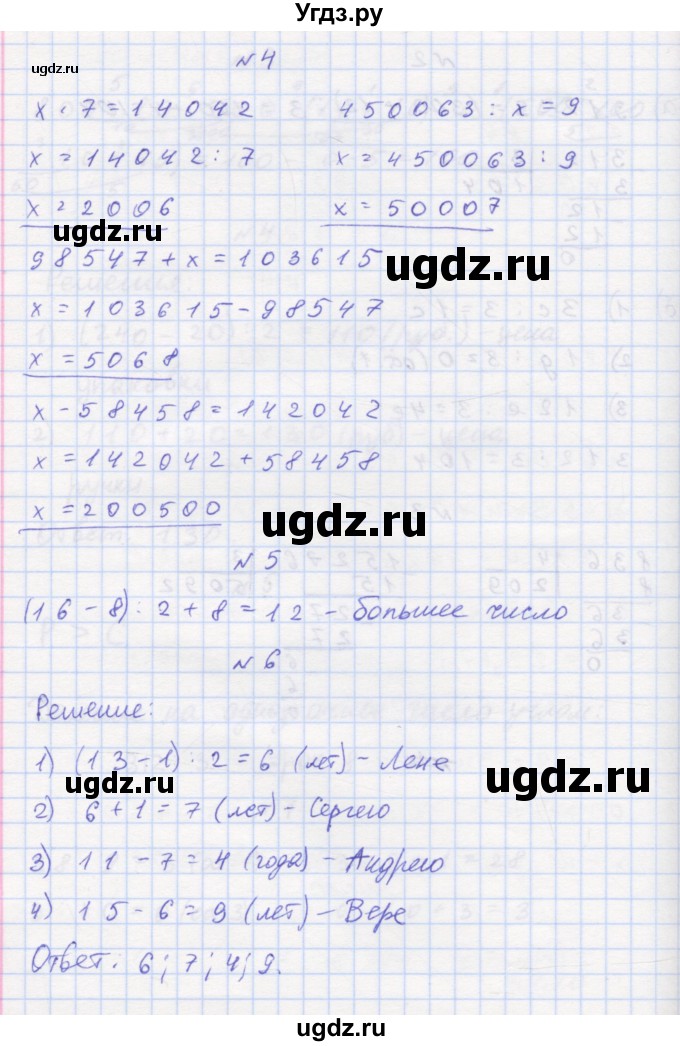 Угдз.ру
ugdz.ru
№4
x · 7 = 14042
450063 : x = 9
x = 14042 : 7
x = 450063 : 9
x = 2006
x = 50007
ugdz.ru
98547 + x = 103615
ugdz.ru
x = 103615 - 98547
x = 5068
ugdz.ru
x - 58458 = 142042
x = 142042 + 58458
x = 200500
ugdz.ru
№5
(16 - 8) : 2 + 8 = 12 - большее число
№6
Решение:
1) (13 - 1) : 2 = 6 (лет) - Лене
ugdz.ru
ugdz.ru
2) 6 + 1 = 7 (лет) - Сергею
3) 11 - 7 = 4 (года) - Андрею
4) 15 - 6 = 9 (лет) - Вере
Ответ: 6; 7; 4; 9.
ugdz.ru
ugdz.ru